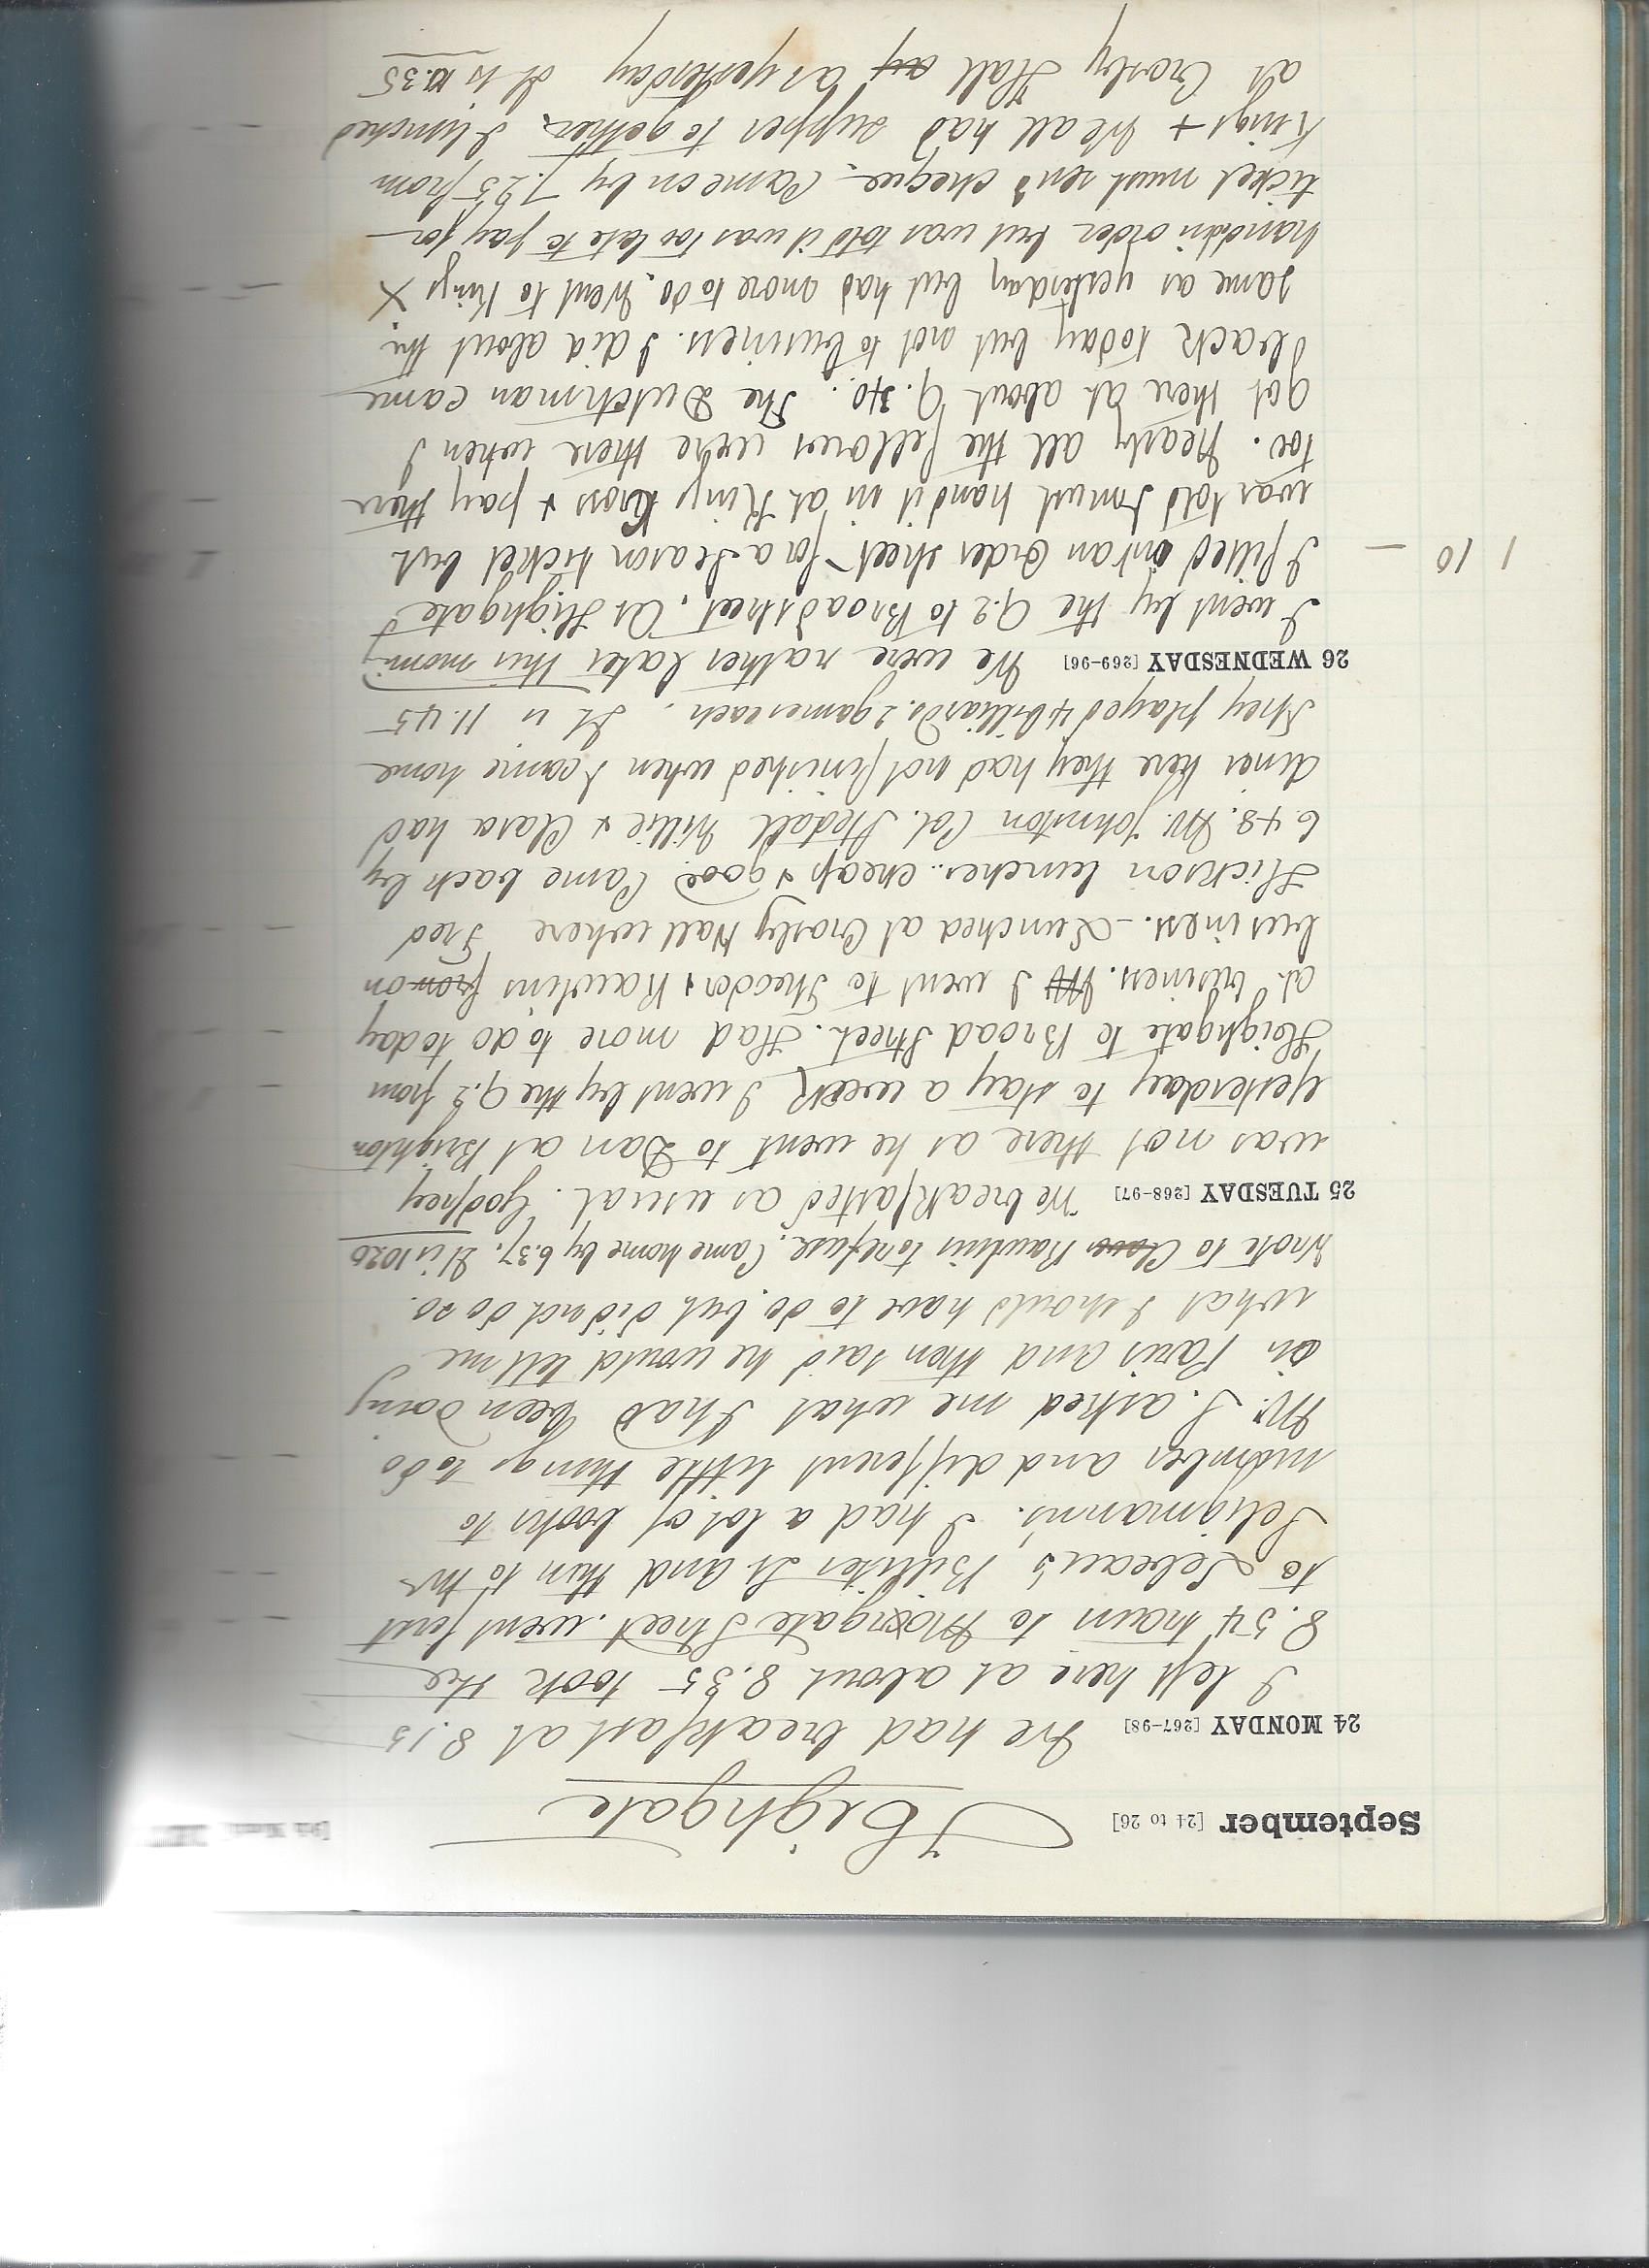 September [24 to 26] Heighgate
24 MONDAY [267-98] We had breakfast at 8.15
I left here at about 8.35 took the
8.54 train to Moorgate Street. went first
to Lebeau's, Billiter St and then to Mr
Seligmann's. I had a lot of books to
number and different little things to do
Mr. S. asked me what I had been doing
in Paris and then said he would tell me
what I should have to do, but did not do so.
Wrote to Rawlins to refuse. Came home by 6.37. It is 10 20
25 TUESDAY [268-97] We breakfasted as usual. Godfrey
was not there as he went to Dan at Brighton
yesterday to stay a week I went by the 9.2 from
Heighgate to Broad Street. Had more to do today
at business. I went to Theodor & Rawlins from on
business. - Lunched at Crosby Hall where Fred
Hickson lunches.. cheap & good. Came back by
6.48. Mr. Johnston Col. Stedall Willie & Clara had
diner here they had not finished when I came home
They played 4 billiards. 2 games each. It is 11.45
26 WEDNESDAY [269-96] We were rather later this morning
I went by the 9.2 to Broadstreet. At Highgate I
1 10 — I filled out an order sheet for a Season ticket but
was told I must hand it in at Kings Cross & pay there
too. Nearly all the fellows were there when I
got there at about 9.30. The Dutchman came
back today but not to business. I did about the
same as yesterday but had more to do. Went to Kings X
handed in order but was told it was too late to pay for
ticket must send cheque. Came on by 7.25 from
Kings + We all had supper together. I lunched
at Crosby Hall as yesterday It is 10.35